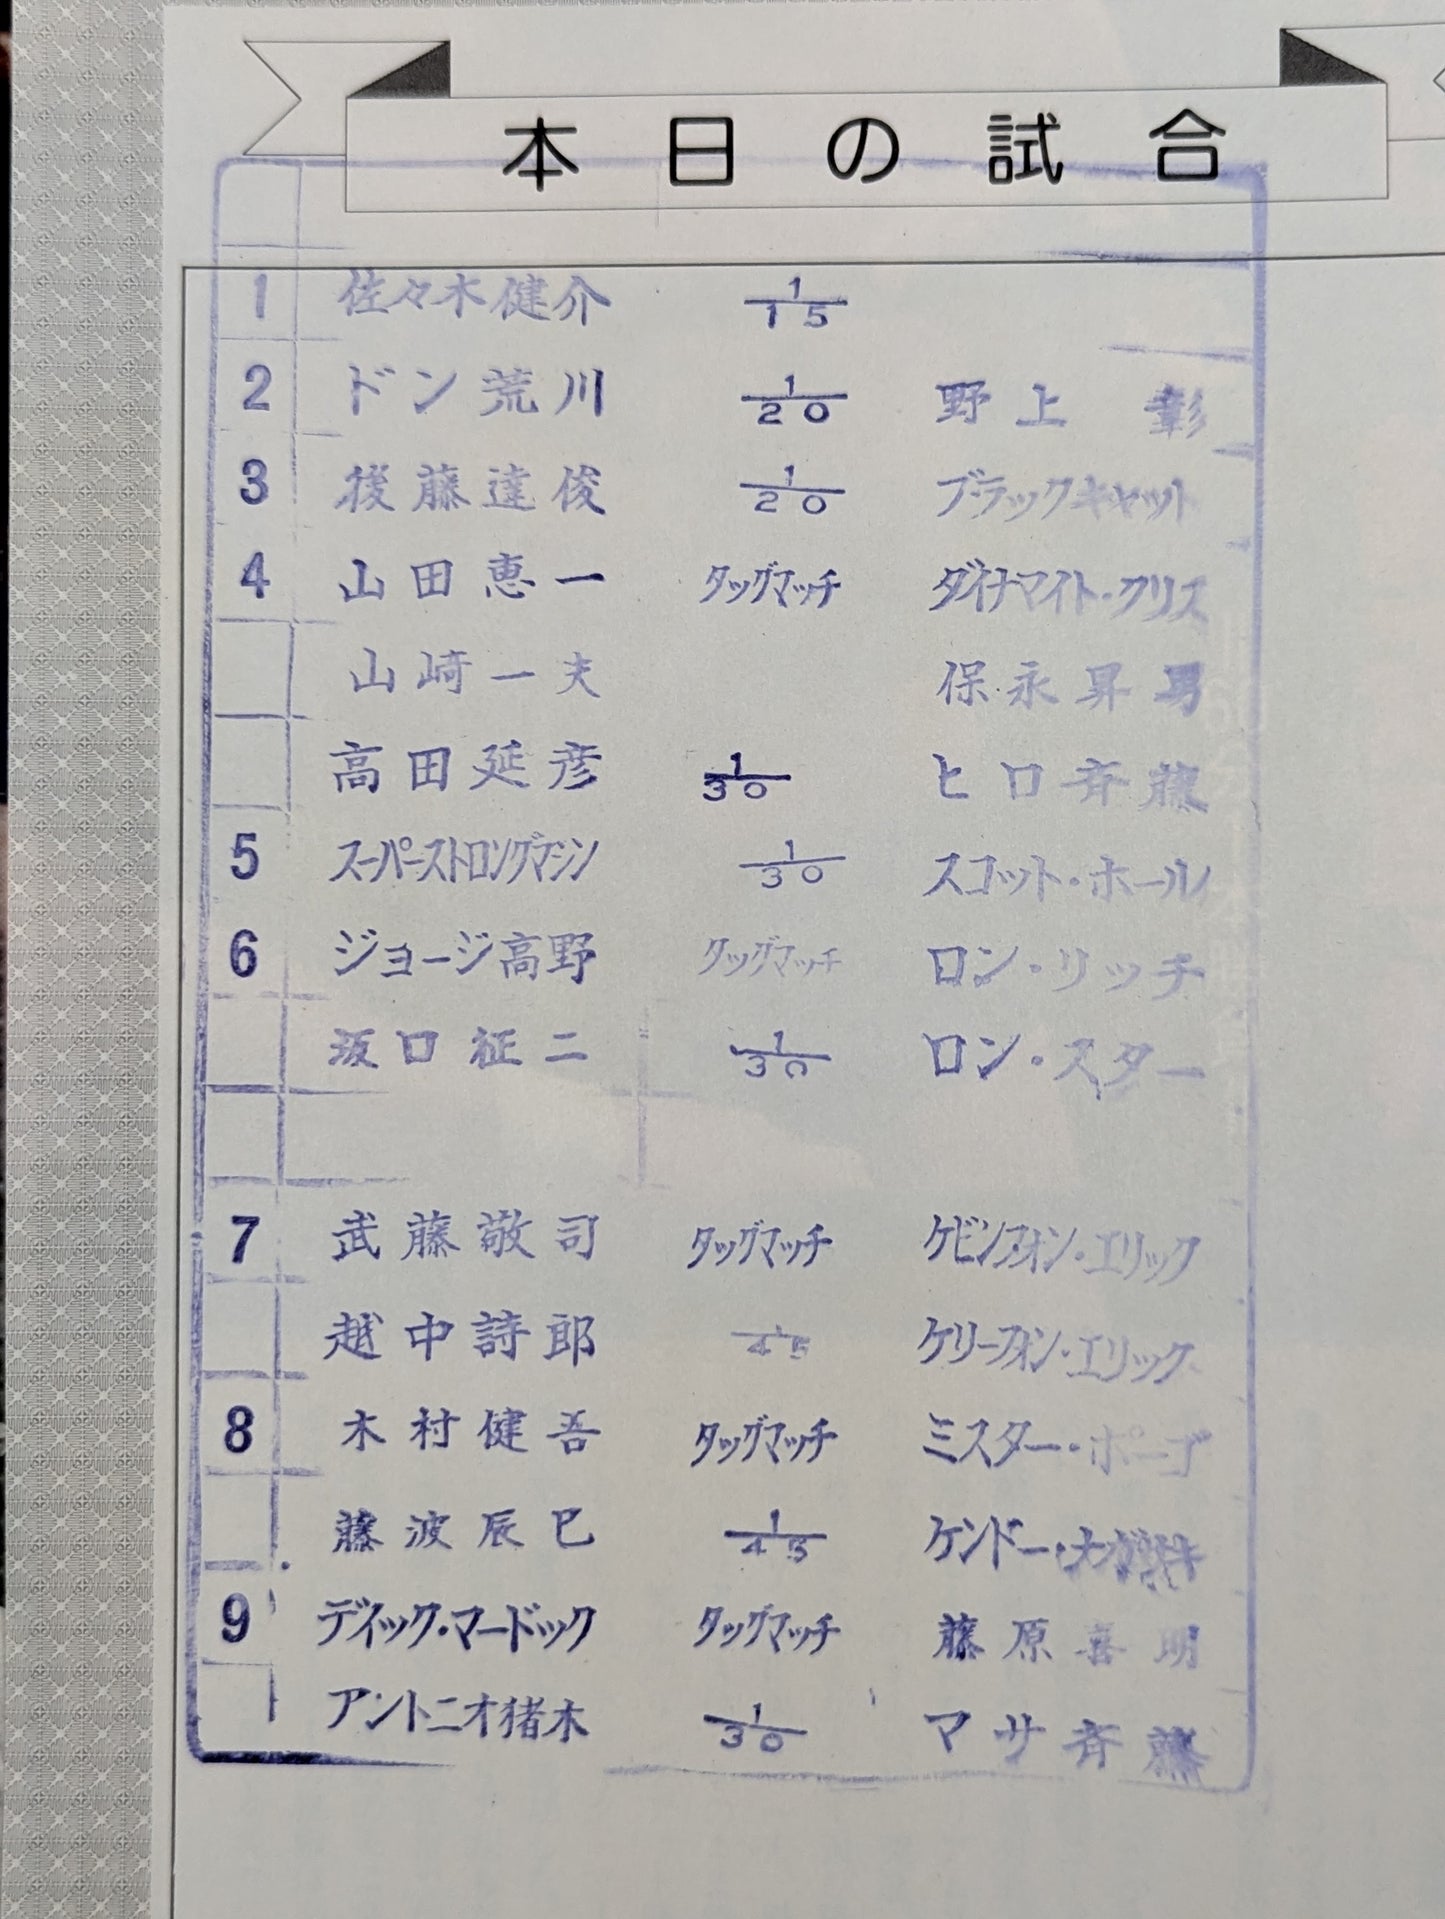 本日の試合
1 佐々木健介 1/15
2 ドン荒川 1/20 野上 彰
3 後藤達俊 1/20 ブラックキャット
4 山田恵一 タッグマッチ ダイナマイト・クリス
山崎一夫 保永昇男
高田延彦 1/30 ヒロ斉藤
5 スーパーストロングマシン 1/30 スコット・ホール
6 ジョージ高野 タッグマッチ ロン・リッチ
坂口征二 1/30 ロン・スター
7 武藤敬司 タッグマッチ ケビンフォン・エリック
越中詩郎 1/45 ケリーフォン・エリック
8 木村健吾 タッグマッチ ミスター・ポーゴ
藤波辰巳 1/45 ケンドー・ナガサキ
9 ディック・マードック タッグマッチ 藤原喜明
アントニオ猪木 1/30 マサ斉藤